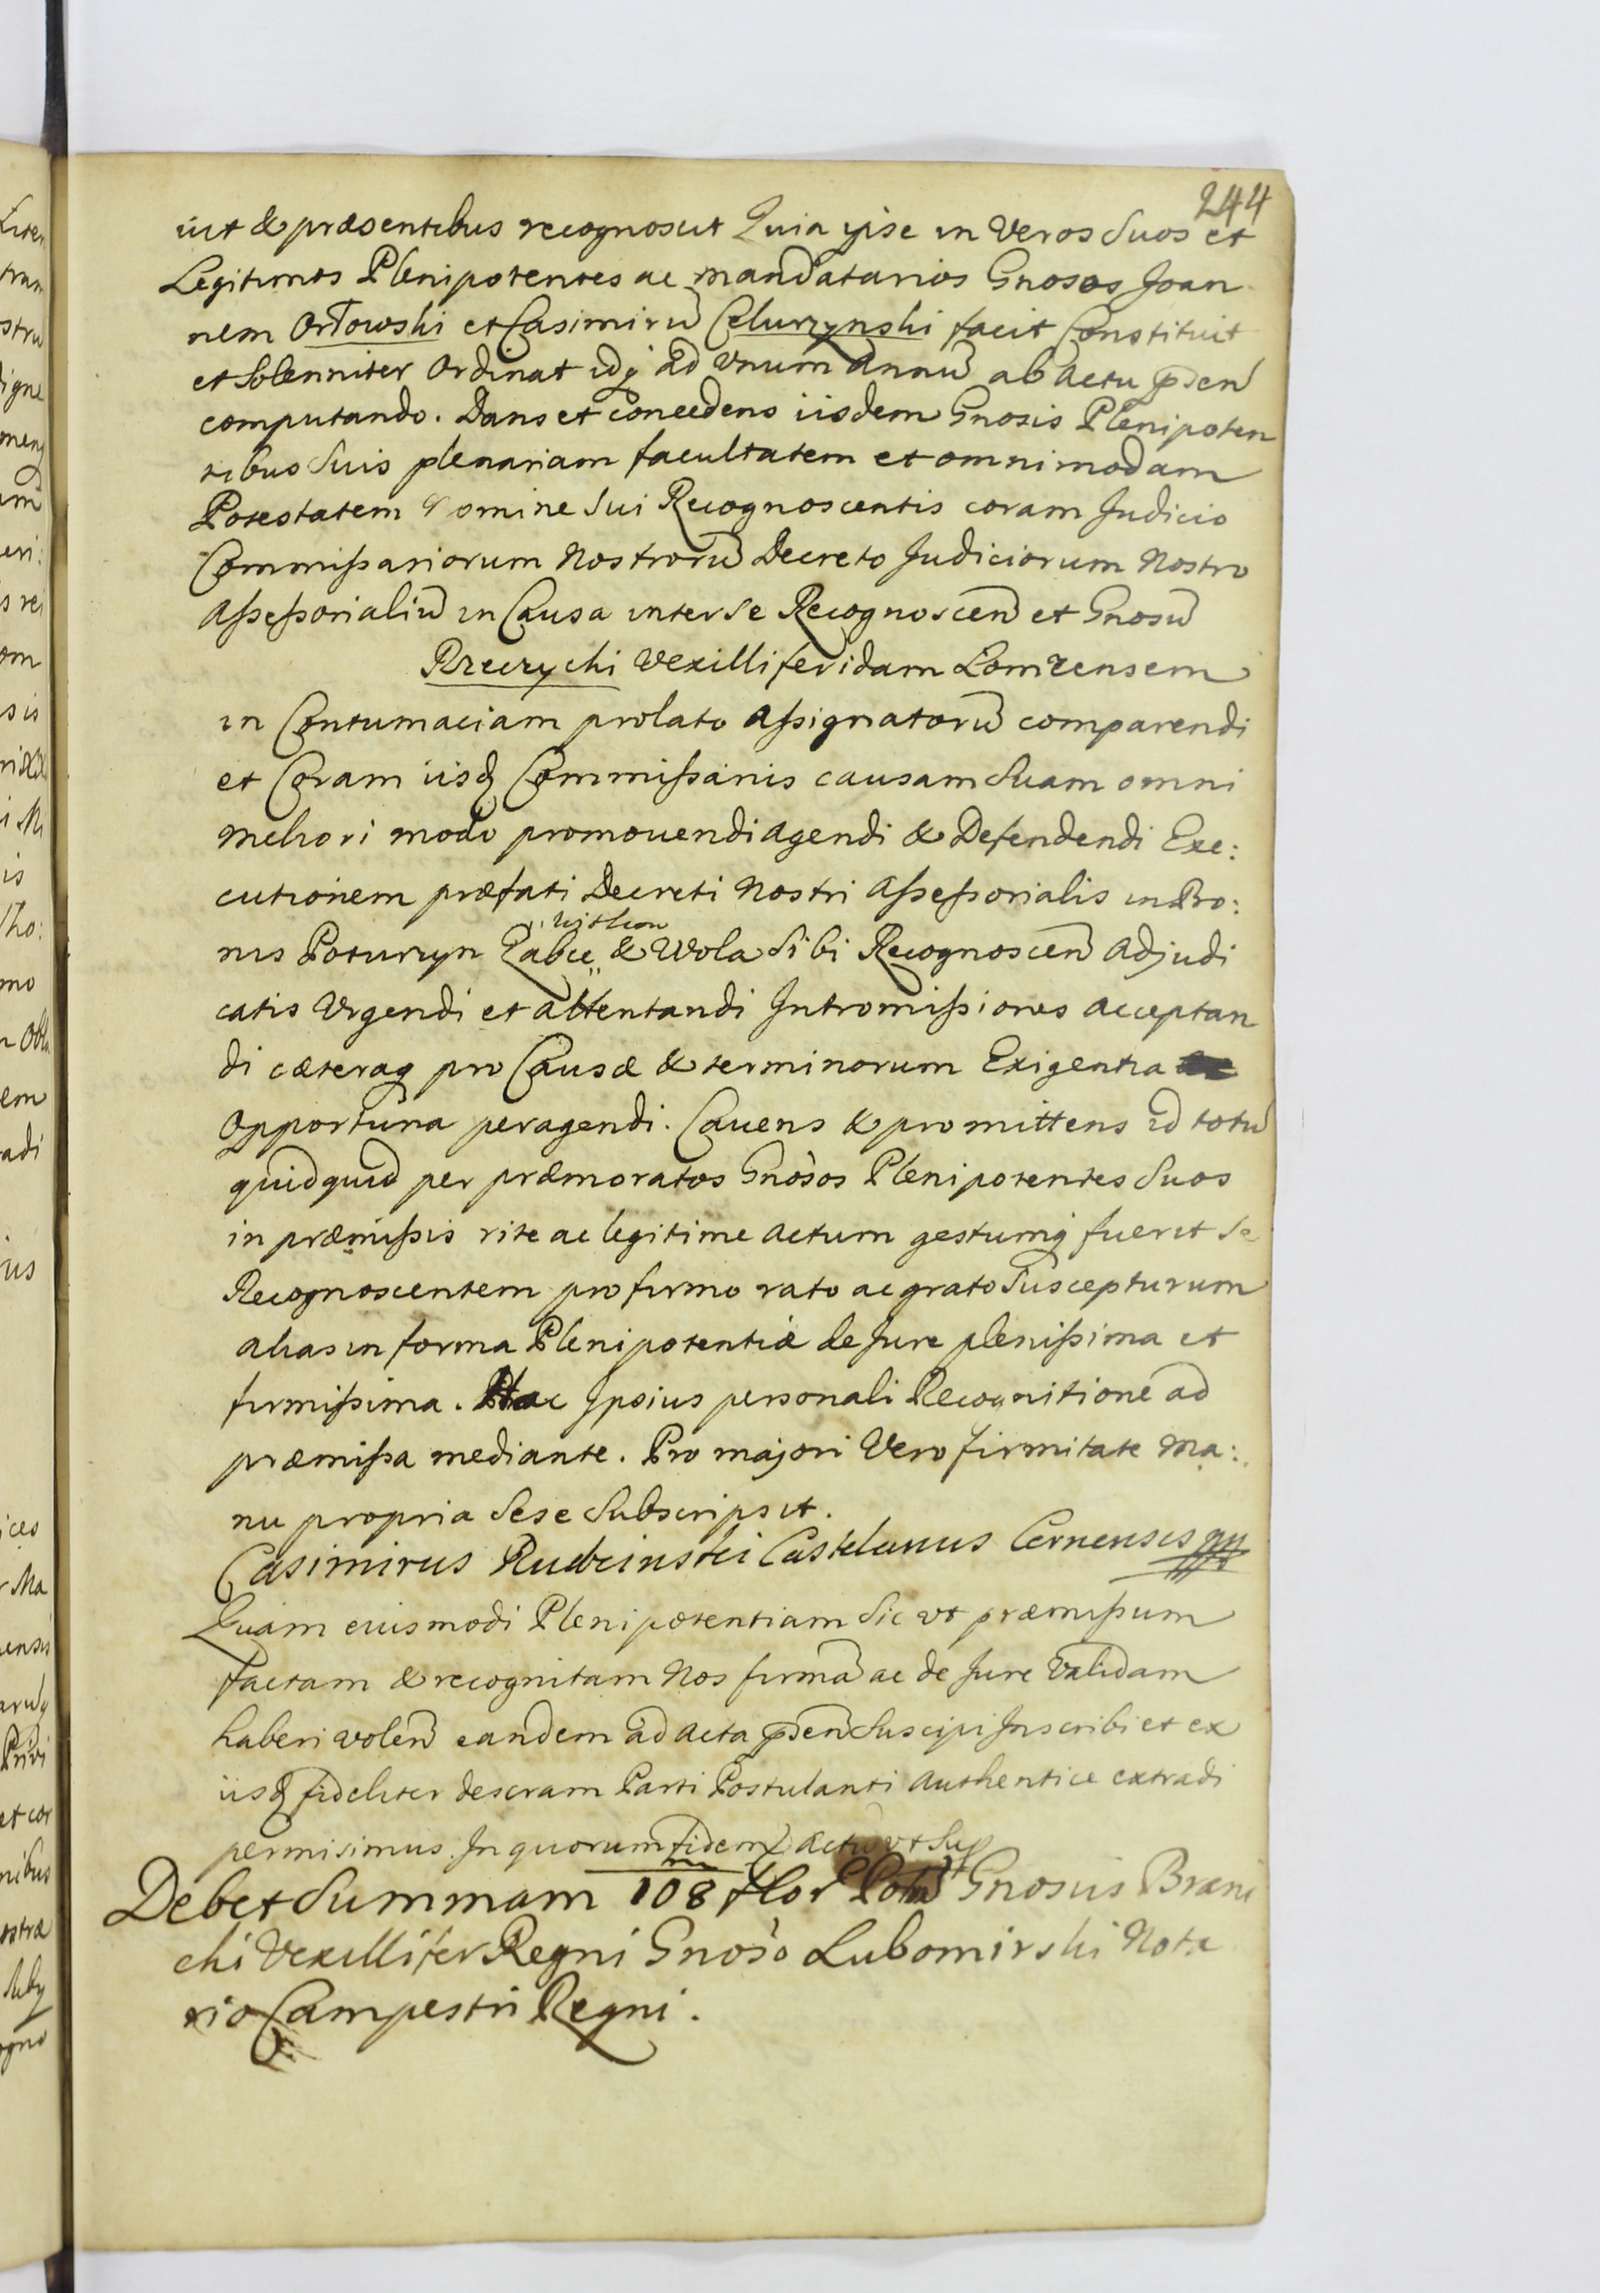 244
iut & præsentibus recognoscit Quia ipse in Veros Suos et
Legitimos Plenipotentes ac mandatarios Gnosos Joan
nem Orłowski et Casimirũ Celurzynski facit Constituit
et Solenniter Ordinat idq ad Vnum Annũ ab Actu p̃sen
computando. Dans et concedens iisdem Gnosis Plenipoten
tibus Suis plenariam facultatem et omnimodam
Potestatem Nomine Sui Recognoscentis coram Judicio
Commißariorum Nostrorũ Decreto Judiciorum Nostro
Aßeßorialiũ in Causa inter Se Recognoscen̄ et Gnosũ
Rzeczychi Vexilliferidam Lomzensem
in Contumaciam prolato Aßignatorũ comparendi
et Coram iisq Commißariis causam Suam omni
meliori modo promouendi Agendi & Defendendi Exe:
cutionem præfati Decreti Nostri Aßeßorialis in Bo:
nis Poturzyn Zabcę & Wola Sibi Recognoscen̄ Adjudi
catis Vrgendi et attentandi Intromißiones acceptan
di cæteraq pro Causæ & terminorum Exigentia
Opportuna peragendi. Cauens & promittens id totũ
quidquid per præmoratos Gnosos Plenipotentes Suos
in præmißis rite ac legitime actum gestumq fuerit Se
Recognoscentem pro firmo rato ac grato Suscepturum
alias in forma Plenipotentiæ de Jure plenißima et
firmißima. Hac Ipsius personali Recognitione ad
præmißa mediante. Pro majori Vero firmitate Ma:
nu propria Sese Subscripsit.
Casimirus Rudzinski Castelanus Cernensis mp
Quam eiusmodi Plenipotentiam Sic vt præmißum
factam & recognitam Nos firmã ac de Jure Validam
haberi volen̄ eandem ad Acta p̃sen Suscipi Inscribi et ex
iisq fideliter descram Parti Postulanti Authentice extradi
permisimus. In quorum fidem Actũ vt Sup
Debet Summam 108 m flor Polũ Gnosus Brani
chi Vexillifer Regni Gnoso Lubomirski Nota
rio Campestri Regni.